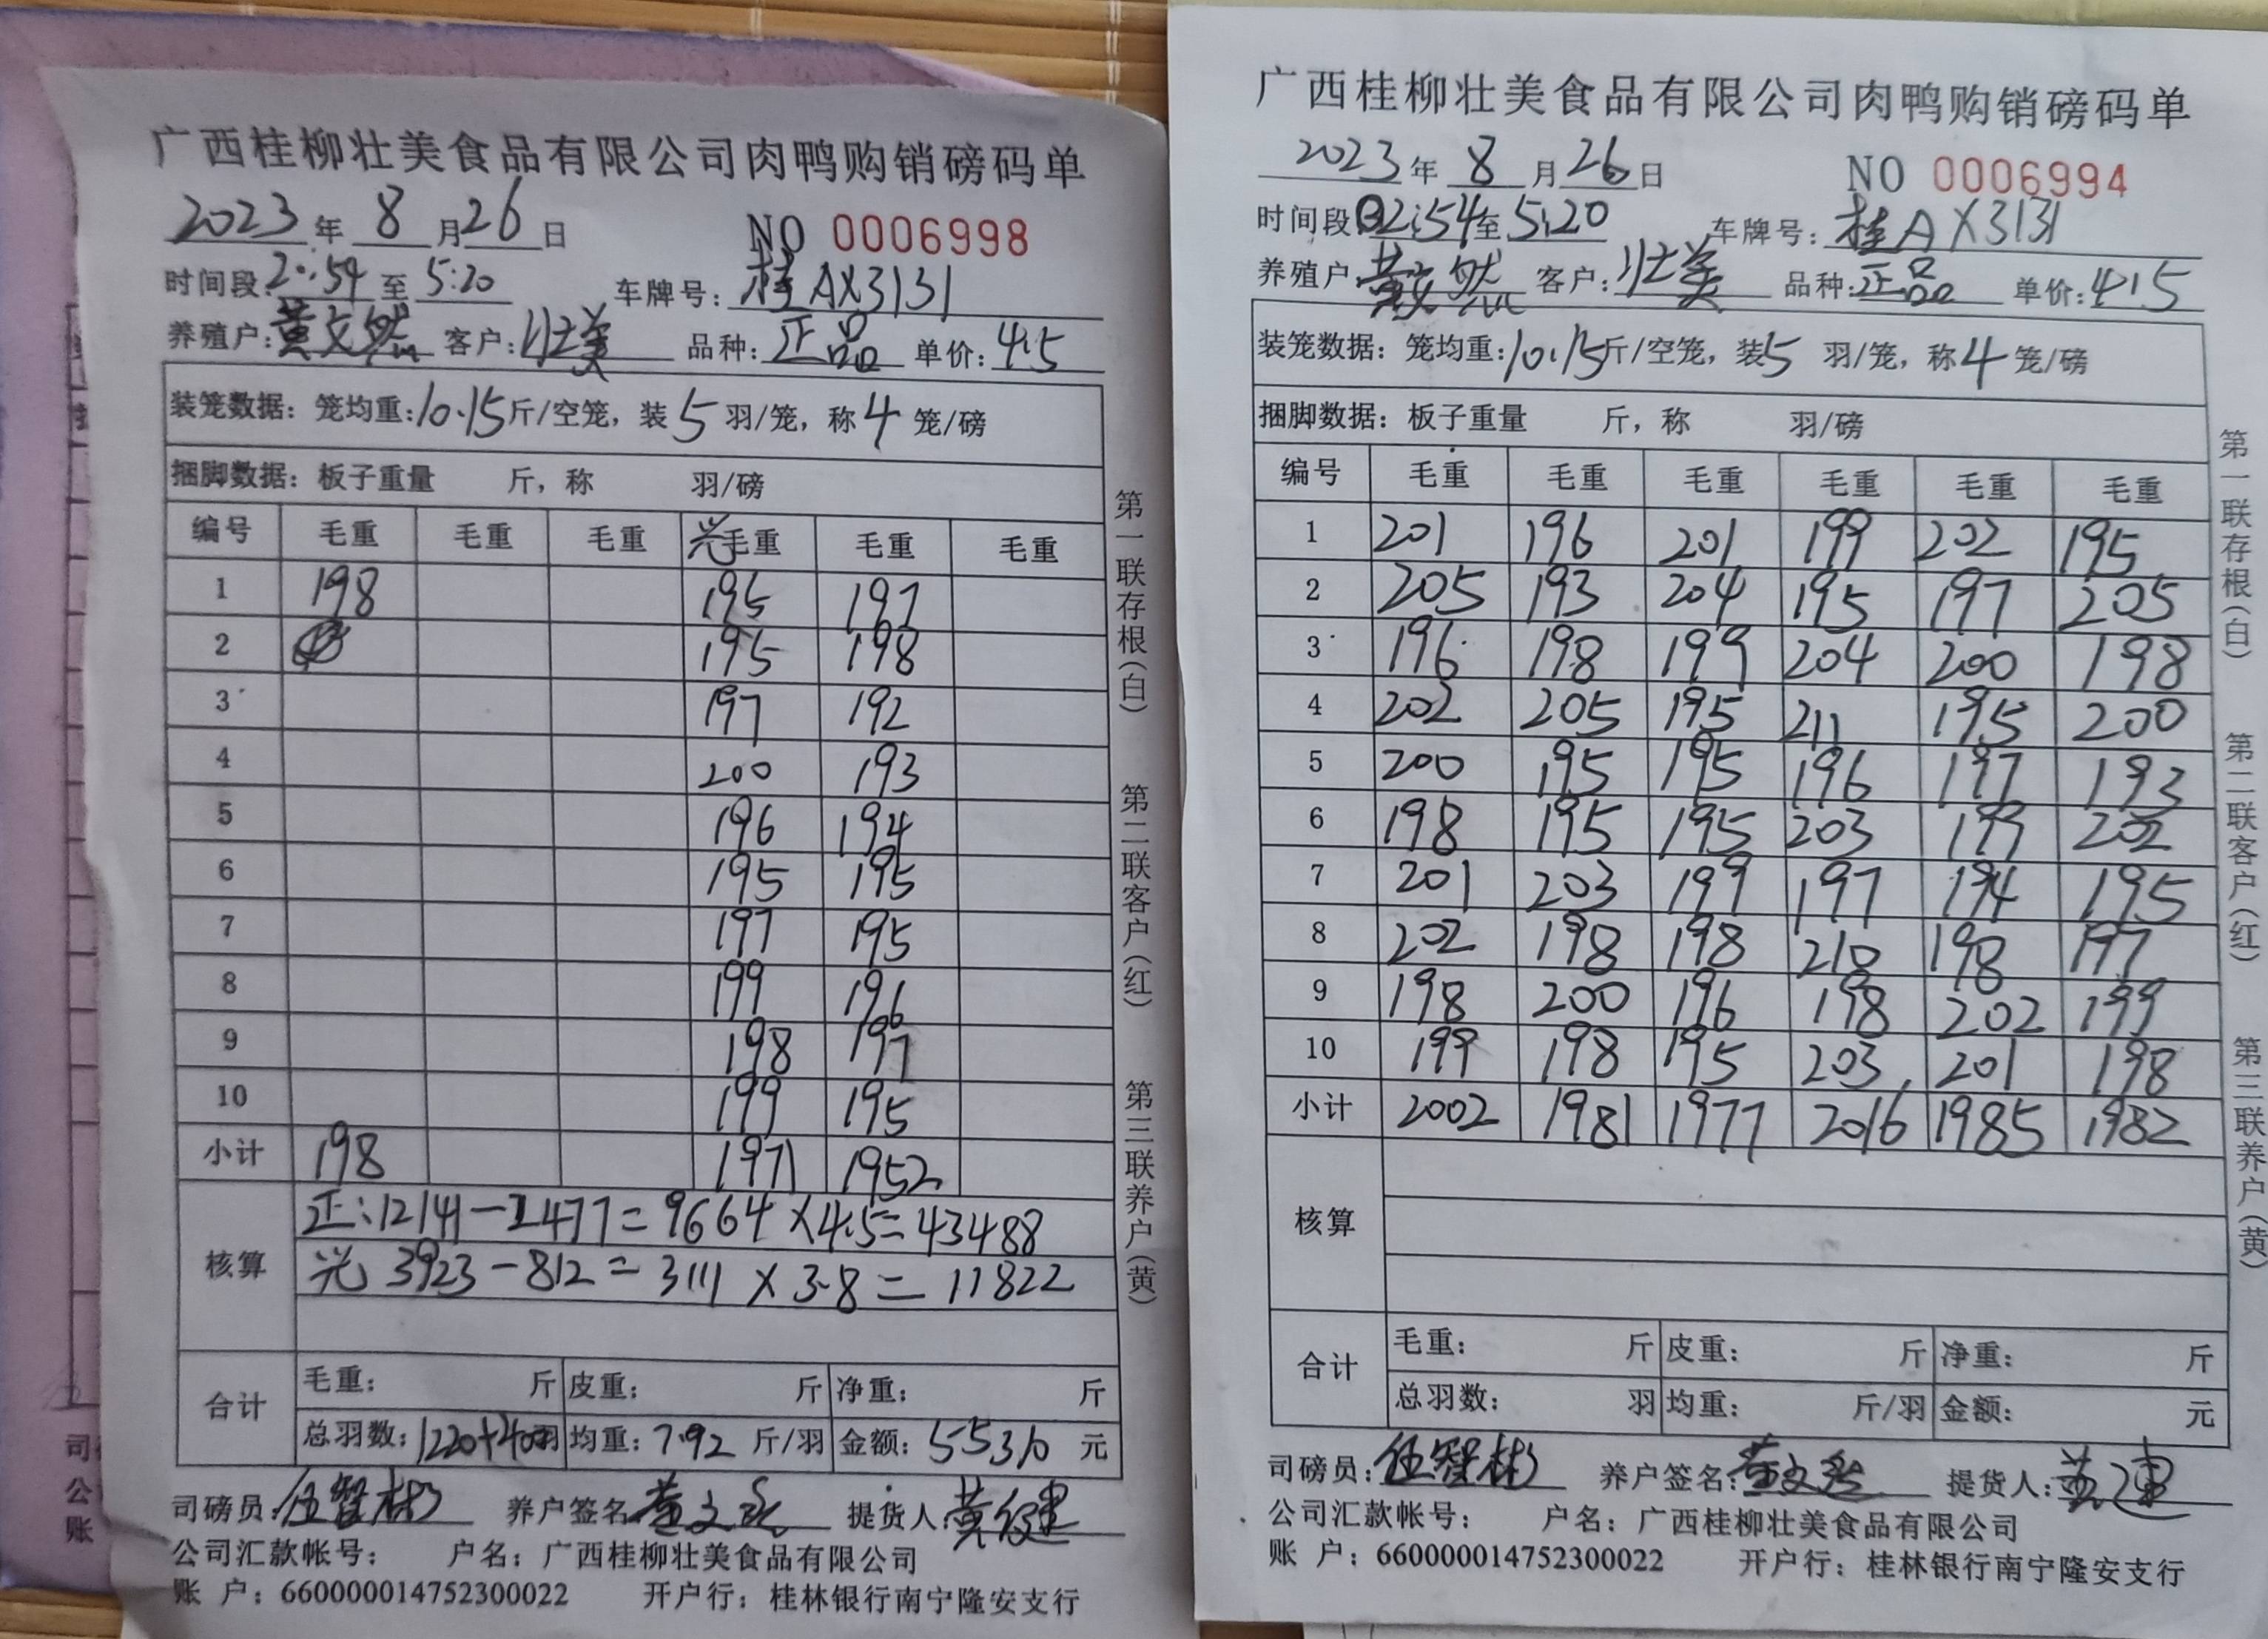 广西桂柳壮美食品有限公司肉鸭购销磅码单
2023年 8 月26日 NO 0006998
时间段:2:54至 5:20 车牌号:桂AX3131
养殖户:黄文然 客户:壮美 品种:正品 单价:4.5
装笼数据: 笼均重:10.15斤/空笼, 装5羽/笼, 称4笼/磅
捆脚数据: 板子重量 斤, 称 羽/磅
编号 毛重 毛重 毛重 光毛重 毛重 毛重
1 198 195 197
2 195 198
3 197 192
4 200 193
5 196 194
6 195 195
7 197 195
8 199 196
9 198 197
10 199 195
小计 198 1971 1952
核算
正:12141-2477=9664×4.5=43488
光 3923-812=3111×3.8=11822
合计
毛重: 斤 皮重: 斤 净重: 斤
总羽数:1220+400羽 均重:7.92斤/羽 金额:55310元
司磅员:伍智彬 养户签名:黄文然 提货人:黄健
公司汇款帐号: 户名:广西桂柳壮美食品有限公司
账 户:660000014752300022 开户行:桂林银行南宁隆安支行
第一联存根(白) 第二联客户(红) 第三联养户(黄)
司
公
账
广西桂柳壮美食品有限公司肉鸭购销磅码单
2023年 8 月26日 NO 0006994
时间段:02:54至5:20 车牌号:桂AX3131
养殖户:黄文然 客户:壮美 品种:正品 单价:4.5
装笼数据: 笼均重:10.15斤/空笼, 装5羽/笼, 称4笼/磅
捆脚数据: 板子重量 斤, 称 羽/磅
编号 毛重 毛重 毛重 毛重 毛重 毛重
1 201 196 201 199 202 195
2 205 193 204 195 197 205
3 196 198 199 204 200 198
4 202 205 195 211 195 200
5 200 195 195 196 197 193
6 198 195 195 203 199 202
7 201 203 199 197 194 195
8 202 198 198 210 198 197
9 198 200 196 198 202 199
10 199 198 195 203 201 198
小计 2002 1981 1977 2016 1985 1982
核算
合计
毛重: 斤 皮重: 斤 净重: 斤
总羽数: 羽 均重: 斤/羽 金额: 元
司磅员:伍智彬 养户签名:黄文然 提货人:黄健
公司汇款帐号: 户名:广西桂柳壮美食品有限公司
账 户:660000014752300022 开户行:桂林银行南宁隆安支行
第一联存根(白) 第二联客户(红) 第三联养户(黄)